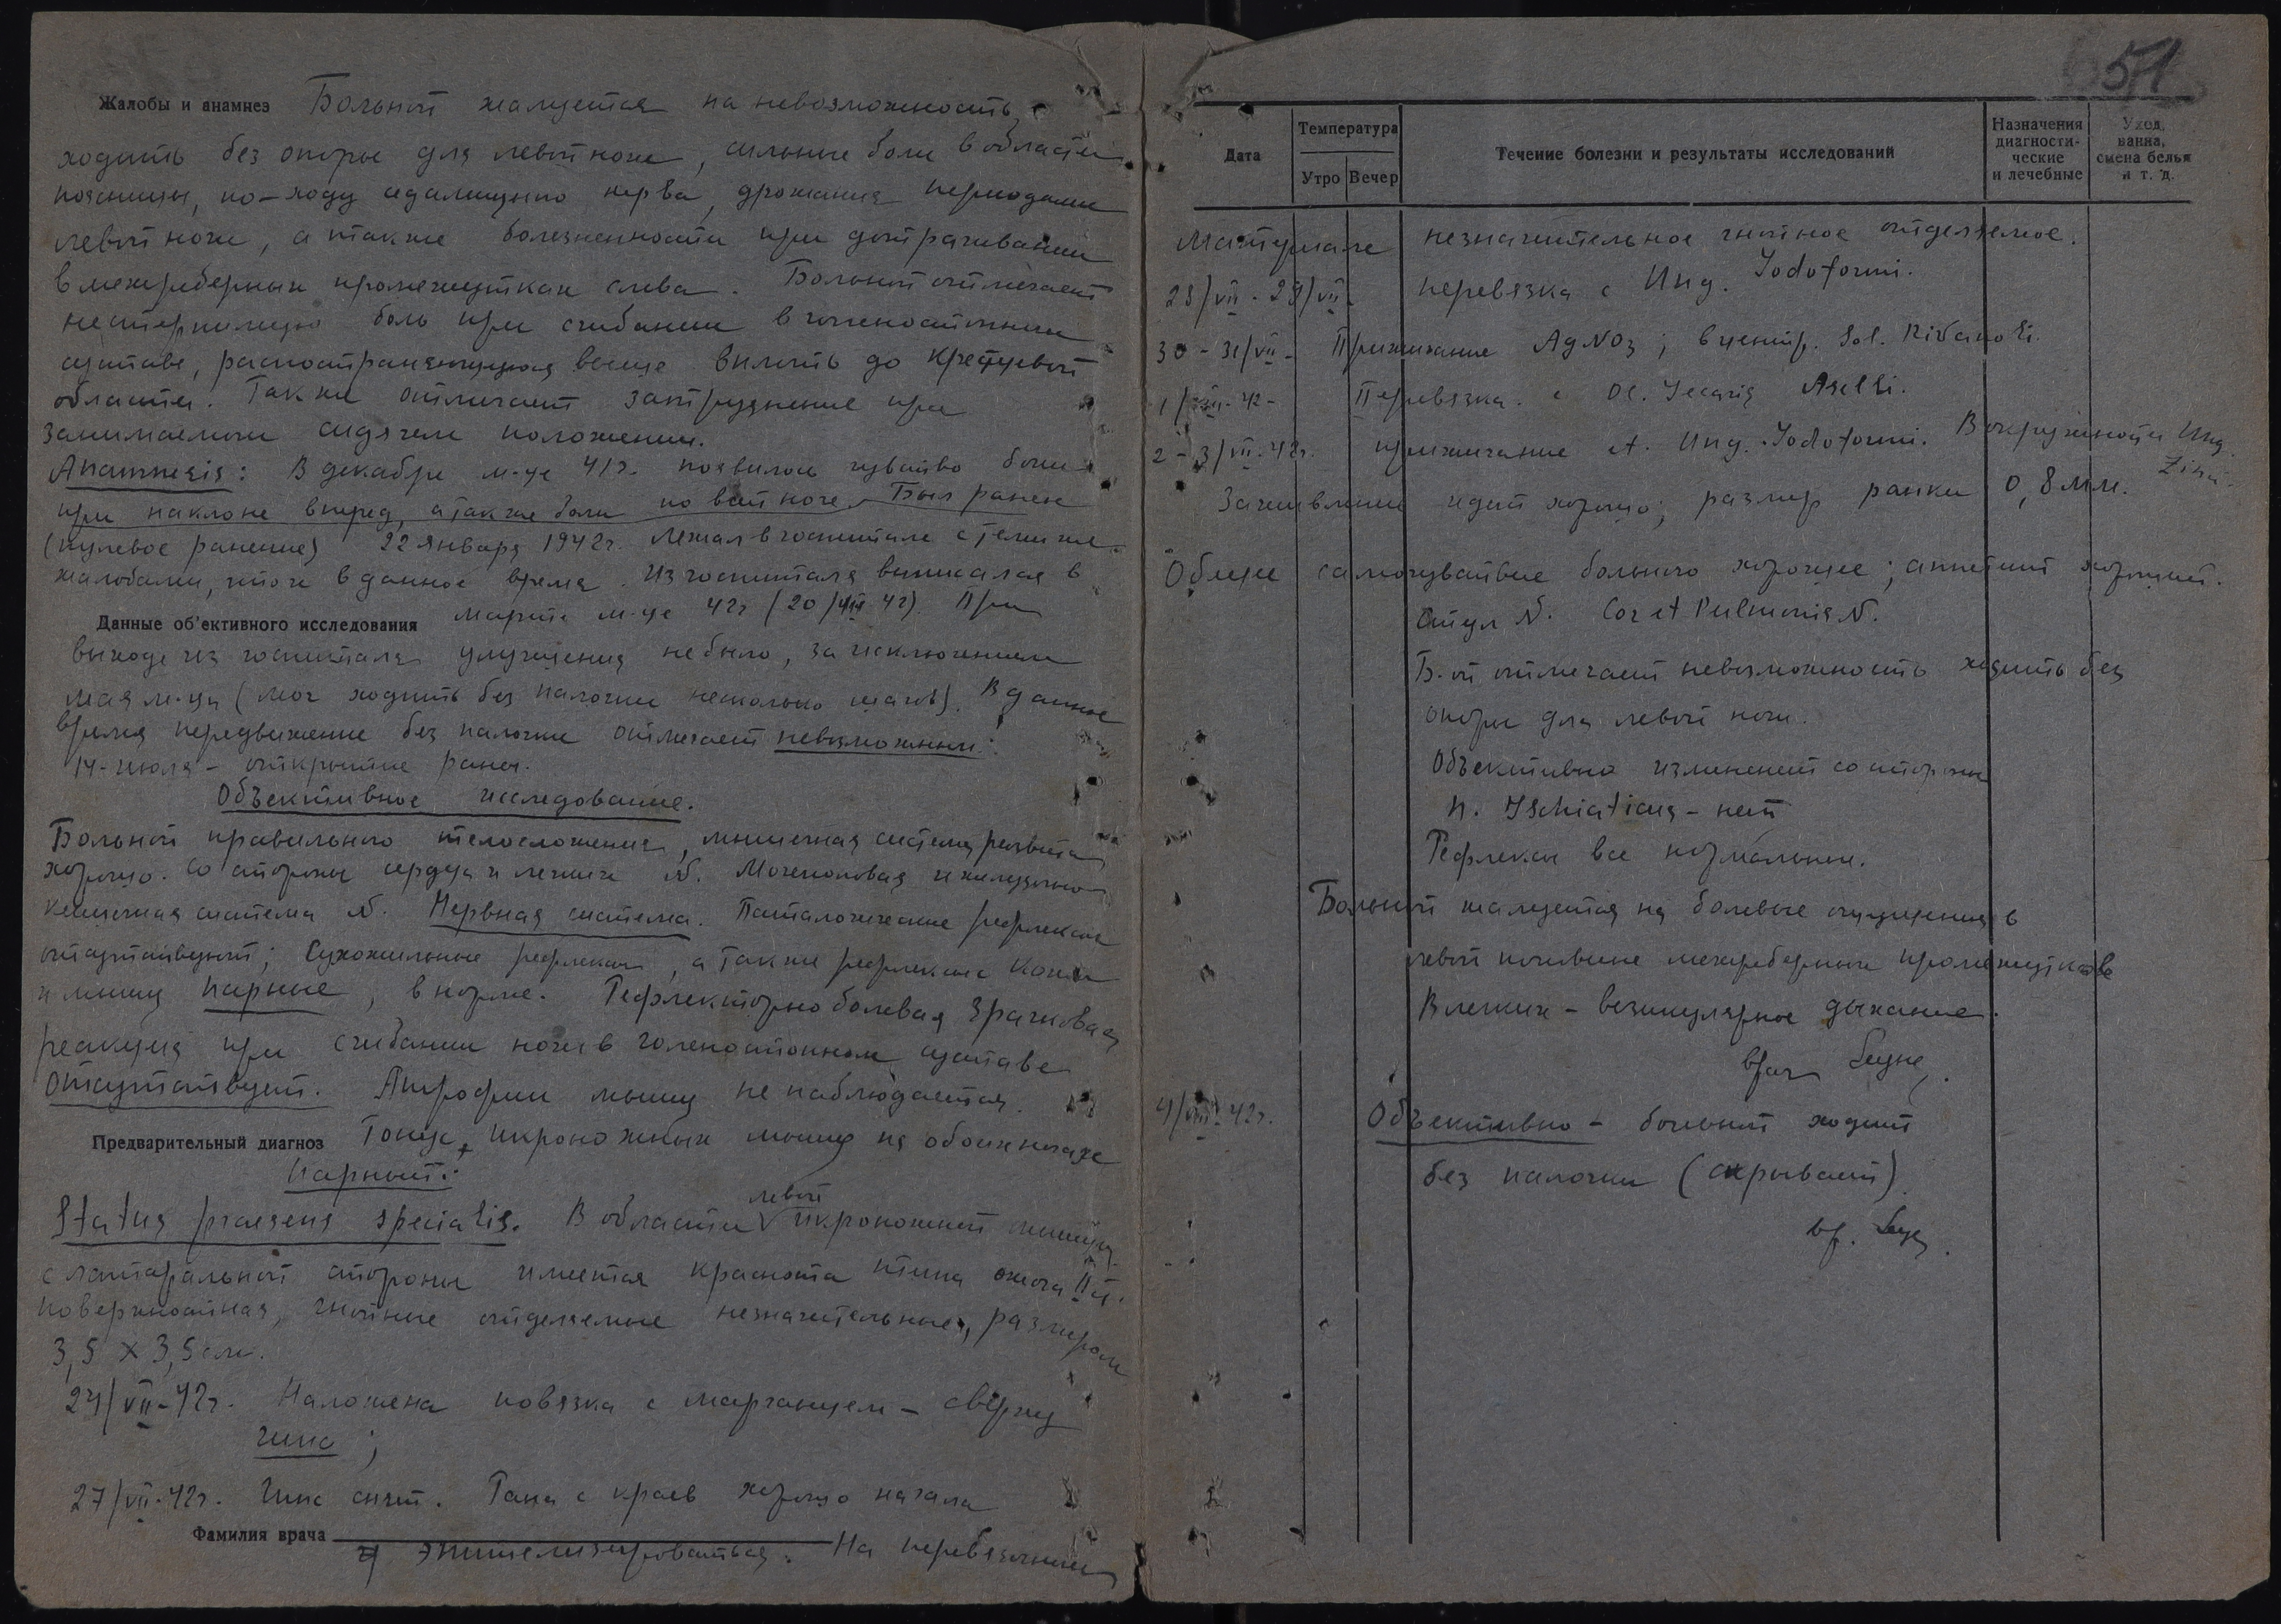 Жалобы и анамнез Больной жалуется на невозможность
ходить без опоры для левой ноги, сильные боли в области
поясницы, по-ходу седалищного нерва, дрожания периодами
левой ноги, а также болезненности при дотрагивании
в межреберных промежутках слева. Больной отмечает
нестерпимую боль при сгибании в голеностопном
суставе, распостраняющуюся выше вплоть до крестцовой
области. Также отмечает затруднение при
занимаемом сидячем положении.
Anamnesis: В декабре м-це 41г. появилось чувство боли
при наклоне вперед, а также боли по всей ноге. Был ранен
(пулевое ранение) 22 января 1942г. Лежал в госпитале с теми же
жалобами, что и в данное время. Из госпиталя выписался в
Данные об'ективного исследования марте м-це 42г (20/ 42). При
выходе из госпиталя улучшения не было, за исключением
мая м-ца (мог ходить без палочки несколько шагов). В данное
время передвижение без палочки отмечает невозможным.
14-июля - открытие раны.
Объективное исследование.
Больной правильного телосложения, мышечная система развита
хорошо. Со стороны сердца и легких N. Мочеполовая и желудочно
кишечная система N. Нервная система. Паталогические рефлексы
отсутствуют; Сухожильные рефлексы, а также рефлексы кожи
и мышц парные, в норме. Рефлекторно болевая зрачковая
реакция при сгибании ноги в голеностопном суставе
отсутствует. Атрофии мышц не наблюдается.
Предварительный диагноз Тонус икроножных мышц на обоих ногах
парный:
Status praesens specialis. В области левой икроножной мышцы
с латеральной стороны имеется краснота типа ожога II ст.
поверхностная, гнойные отделяемые незначительные, размером
3,5 x 3,5 см.
24/VII-42г. Наложена повязка с марганцем - сверху
гипс;
27/VII-42г. Гипс снят. Рана с краев хорошо начала
Фамилия врача
эпителизироваться. На перевязочном
51
Дата
Температура
Утро Вечер
Течение болезни и результаты исследований
Назначения диагности-ческие и лечебные
Уход, ванна, смена белья и т. д.
материале незначительное гнойное отделяемое.
28/VII - 29/VII- перевязка с Ung. Jodoformi.
30 - 31/VII - Прижигание AgNO3; в центр. Sol. Rivanoli.
1/VIII-42- Перевязка с Ol. Jecoris Aselli.
2 - 3/VII-42г. прижигание et. Ung. Jodoformi. В окружности Ung.
Zinci.
Заживление идет хорошо; размер ранки 0,8 мм.
Общее самочувствие больного хорошее; аппетит хороший.
Стул N. Cor et Pulmonis N.
Б-ой отмечает невозможность ходить без
опоры для левой ноги.
Объективно изменений со стороны
n. Ischiaticus - нет
Рефлексы все нормальны.
Больной жалуется на болевые ощущения в
левой половине межреберных промежутков
В легких - везикулярное дыхание.
врач
4/VIII 42г. Объективно - больной ходит
без палочки (скрывает).
вр.